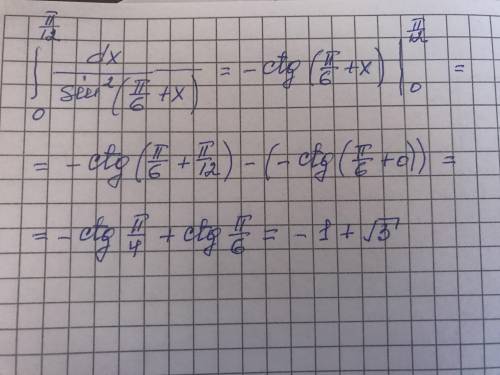 ∫₀^(π/12) dx / sin²(π/6 + x) = - ctg(π/6 + x) |₀^(π/12) =
= - ctg(π/6 + π/12) - (- ctg(π/6 + 0)) =
= - ctg π/4 + ctg π/6 = - 1 + √3